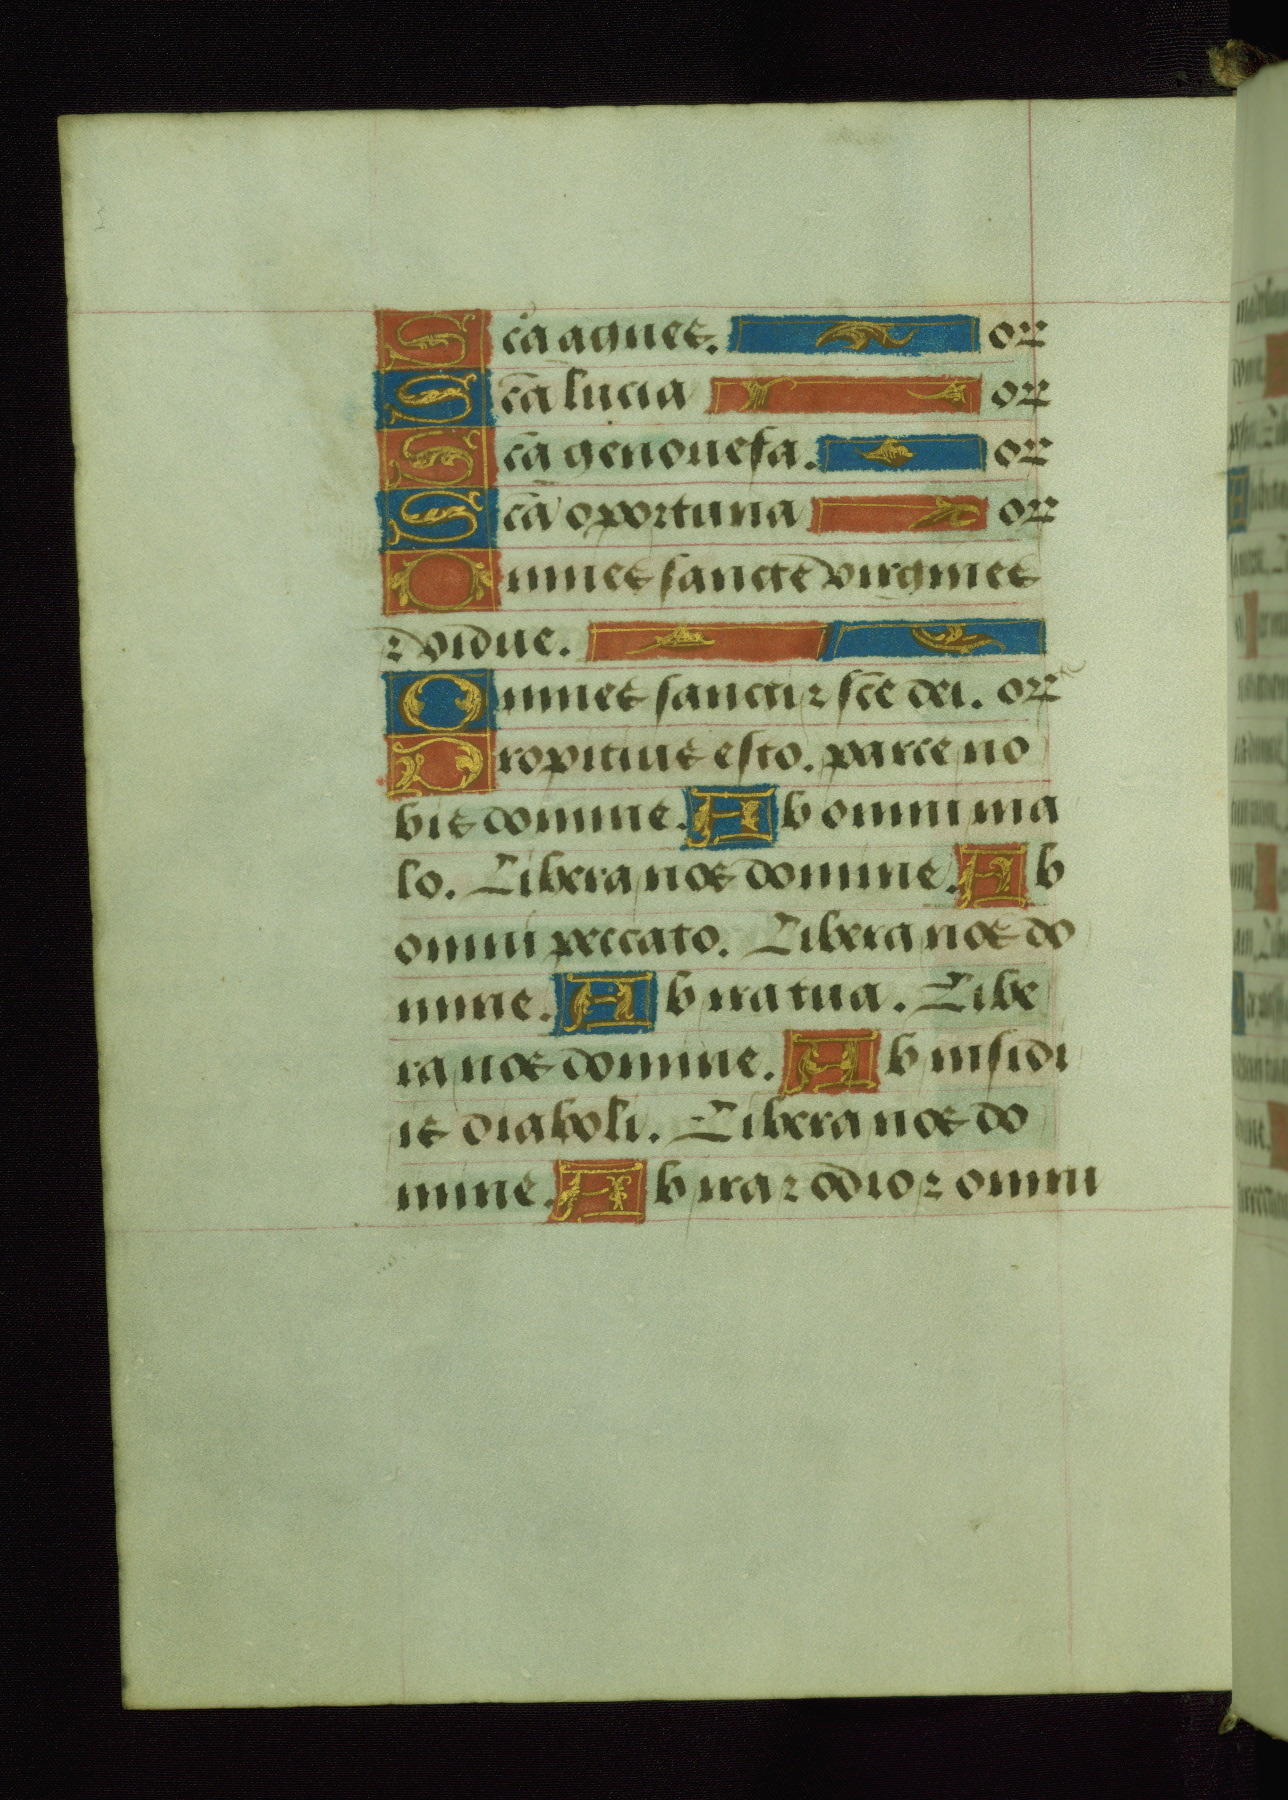 Scā agnes. or
Scā lucia or
Scā genouefa. or
Scā oportuna or
Omnes sancte virgines
⁊ vidue.
Omnes sancti ⁊ sce dei. or
Propitius esto. parce no
bis domine. Ab omni ma
lo. Libera nos domine. Ab
omni peccato. Libera nos do
mine. Ab ira tua. Libe
ra nos domine. Ab insidi
is diaboli. Libera nos do
mine. Ab ira ⁊ odio ⁊ omni